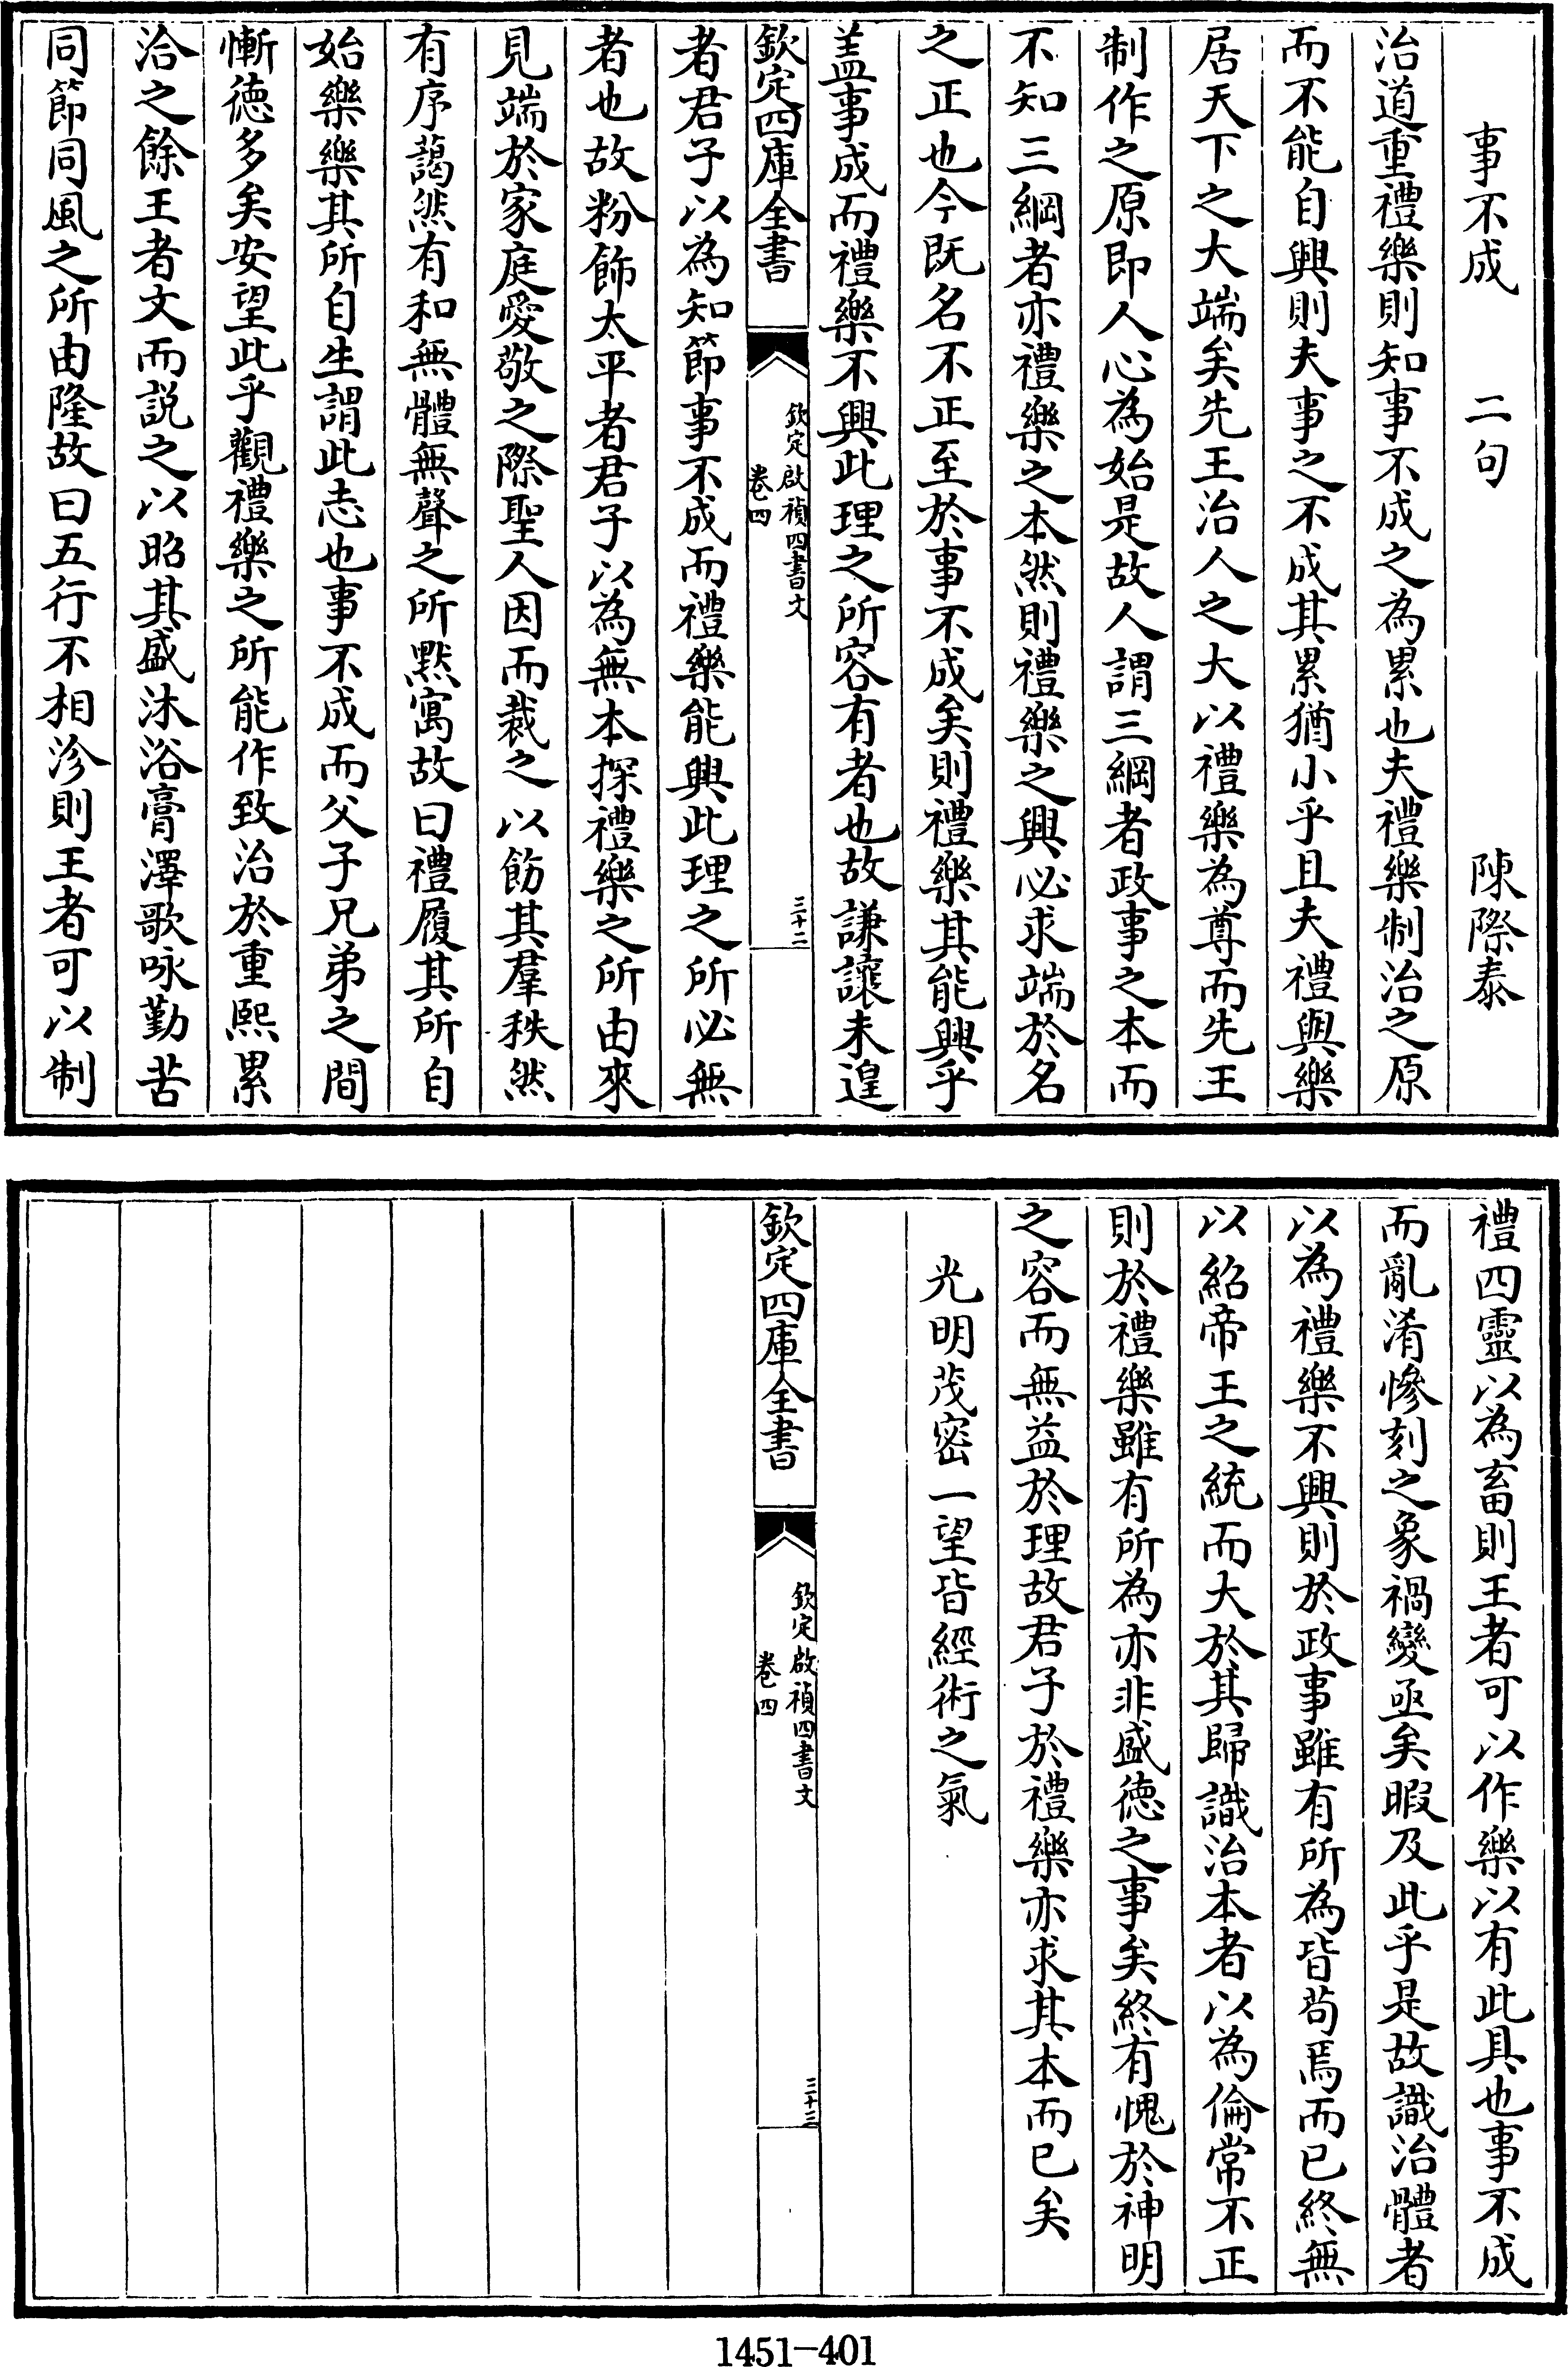 事不成　二句　陳際泰
治道重禮樂則知事不成之為累也夫禮樂制治之原
而不能自興則夫事之不成其累猶小乎且夫禮與樂
居天下之大端矣先王治人之大以禮樂為尊而先王
制作之原即人心為始是故人謂三綱者政事之本而
不知三綱者亦禮樂之本然則禮樂之興必求端於名
之正也今既名不正至於事不成矣則禮樂其能興乎
盖事成而禮樂不興此理之所容有者也故謙讓未遑
欽定四庫全書
欽定啟禎四書文
卷四
三十二
者君子以為知節事不成而禮樂能興此理之所必無
者也故粉飾太平者君子以為無本探禮樂之所由來
見端於家庭愛敬之際聖人因而裁之以飭其羣秩然
有序藹然有和無體無聲之所黙寓故曰禮履其所自
始樂樂其所自生謂此志也事不成而父子兄弟之間
慚徳多矣安望此乎觀禮樂之所能作致治於重熙累
洽之餘王者文而説之以昭其盛沐浴膏澤歌咏勤苦
同節同風之所由隆故曰五行不相沴則王者可以制
禮四靈以為畜則王者可以作樂以有此具也事不成
而亂淆慘刻之象禍變亟矣暇及此乎是故識治體者
以為禮樂不興則於政事雖有所為皆苟焉而已終無
以紹帝王之統而大於其歸識治本者以為倫常不正
則於禮樂雖有所為亦非盛徳之事矣終有愧於神明
之容而無益於理故君子於禮樂亦求其本而已矣
光明茂密一望皆經術之氣
欽定四庫全書
欽定啟禎四書文
卷四
三十三
1451-401